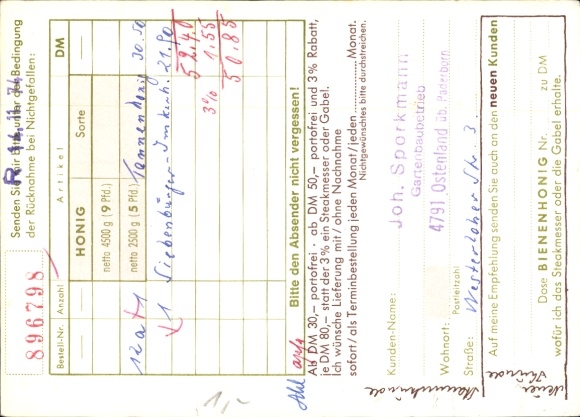 896798
R 14.11.74
Senden Sie mir bitte unter der Bedingung
der Rücknahme bei Nichtgefallen:
Bestell-Nr. Anzahl Artikel DM
HONIG Sorte
netto 4500 g (9 Pfd.)
netto 2500 g (5 Pfd.)
1 Tannenhonig 30.50
1 Siebenbürger-Imkerh. 21.90
52.40
3% 1.55
50.85
Bitte den Absender nicht vergessen!
Ab DM 30,– portofrei · ab DM 50,– portofrei und 3% Rabatt,
je DM 80,– statt der 3% ein Steakmesser oder Gabel.
Ich wünsche Lieferung mit / ohne Nachnahme
sofort / als Terminbestellung jeden Monat / jeden Monat.
Nichtgewünschtes bitte durchstreichen.
Kunden-Name:
Joh. Sporkmann
Gartenbaubetrieb
Wohnort:
4791 Ostenland üb. Paderborn
Postleitzahl
Straße: Westerloher Str. 3
Auf meine Empfehlung senden Sie auch an den neuen Kunden
Dose BIENENHONIG Nr. zu DM
wofür ich das Steakmesser oder die Gabel erhalte.
1,-